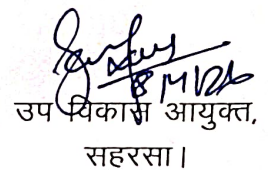 उप विकास आयुक्त,
सहरसा।